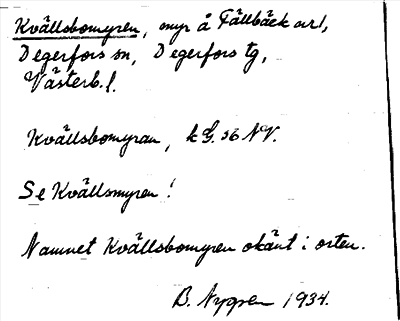 Kvällsbomyren, myr å Fällbäck arl,
Degerfors sn, Degerfors tg,
Västerb. l.
Kvällsbomyran, k G. 56 NV.
Se Kvällsmyren!
Namnet Kvällsbomyren okänt i orten.
B. Nygren 1934.